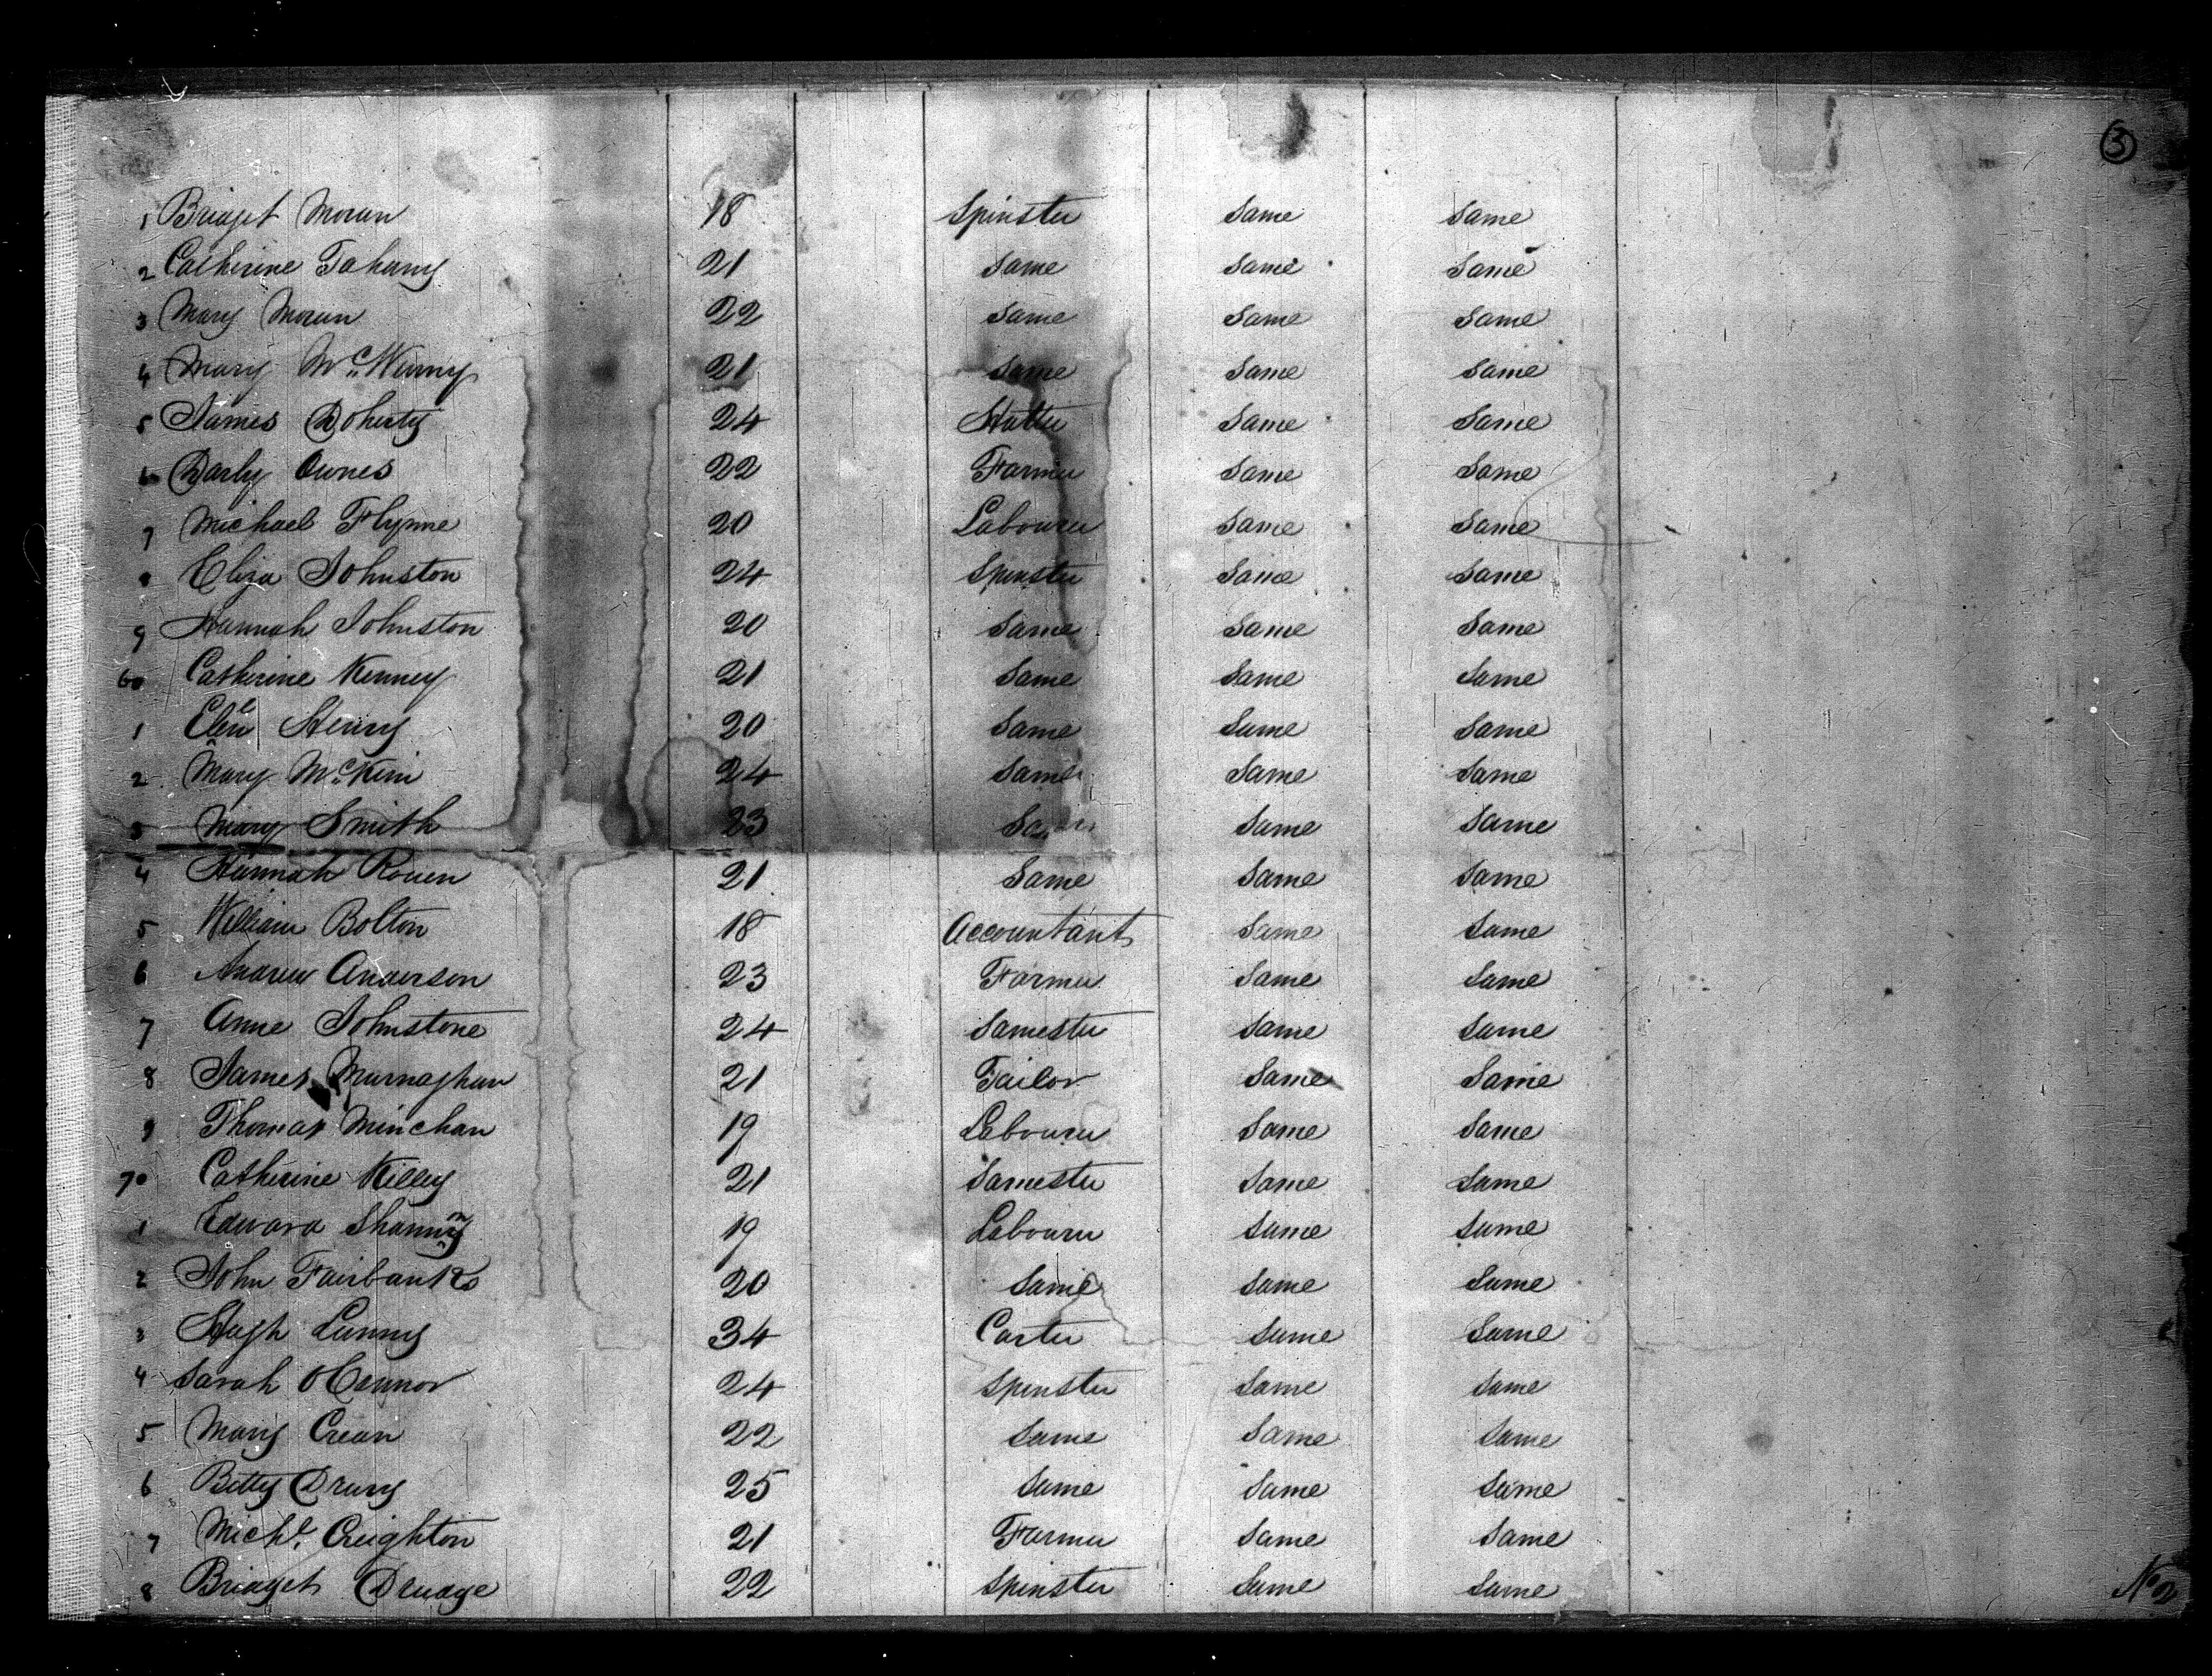 3
1 Bridget Moran 18 Spinster Same Same
2 Catherine Tahany 21 Same Same Same
3 Mary Moran 22 Same Same Same
4 Mary Mc 21 Same Same Same
5 James Doherty 24 Hatter Same Same
6 Darly Ownes 22 Farmer Same Same
7 Michael Flynne 20 Labourer Same Same
8 Eliza Johnston 24 Spinster Same Same
9 Hannah Johnston 20 Same Same Same
60 Catherine Kenney 21 Same Same Same
1 Henry 20 Same Same Same
2 Mary McKim 24 Same Same Same
3 Mary Smith 23 Same Same Same
4 Hannah Rouen 21 Same Same Same
5 William Bolton 18 Accountant Same Same
6 Andrew Anderson 23 Farmer Same Same
7 Anne Johnstone 24 Samester Same Same
8 James Murnaghan 21 Tailor Same Same
9 Thomas Minchan 19 Labourer Same Same
70 Catherine Killey 21 Samester Same Same
1 Edward 19 Labourer Same Same
2 John Fairbanks 20 Same Same Same
3 Hugh Lunny 34 Carter Same Same
4 Sarah OConnor 24 Spinster Same Same
5 Mary Crean 22 Same Same Same
6 Betty Drury 25 Same Same Same
7 Michl. Creighton 21 Farmer Same Same
8 Bridget Druage 22 Spinster Same Same
No 2